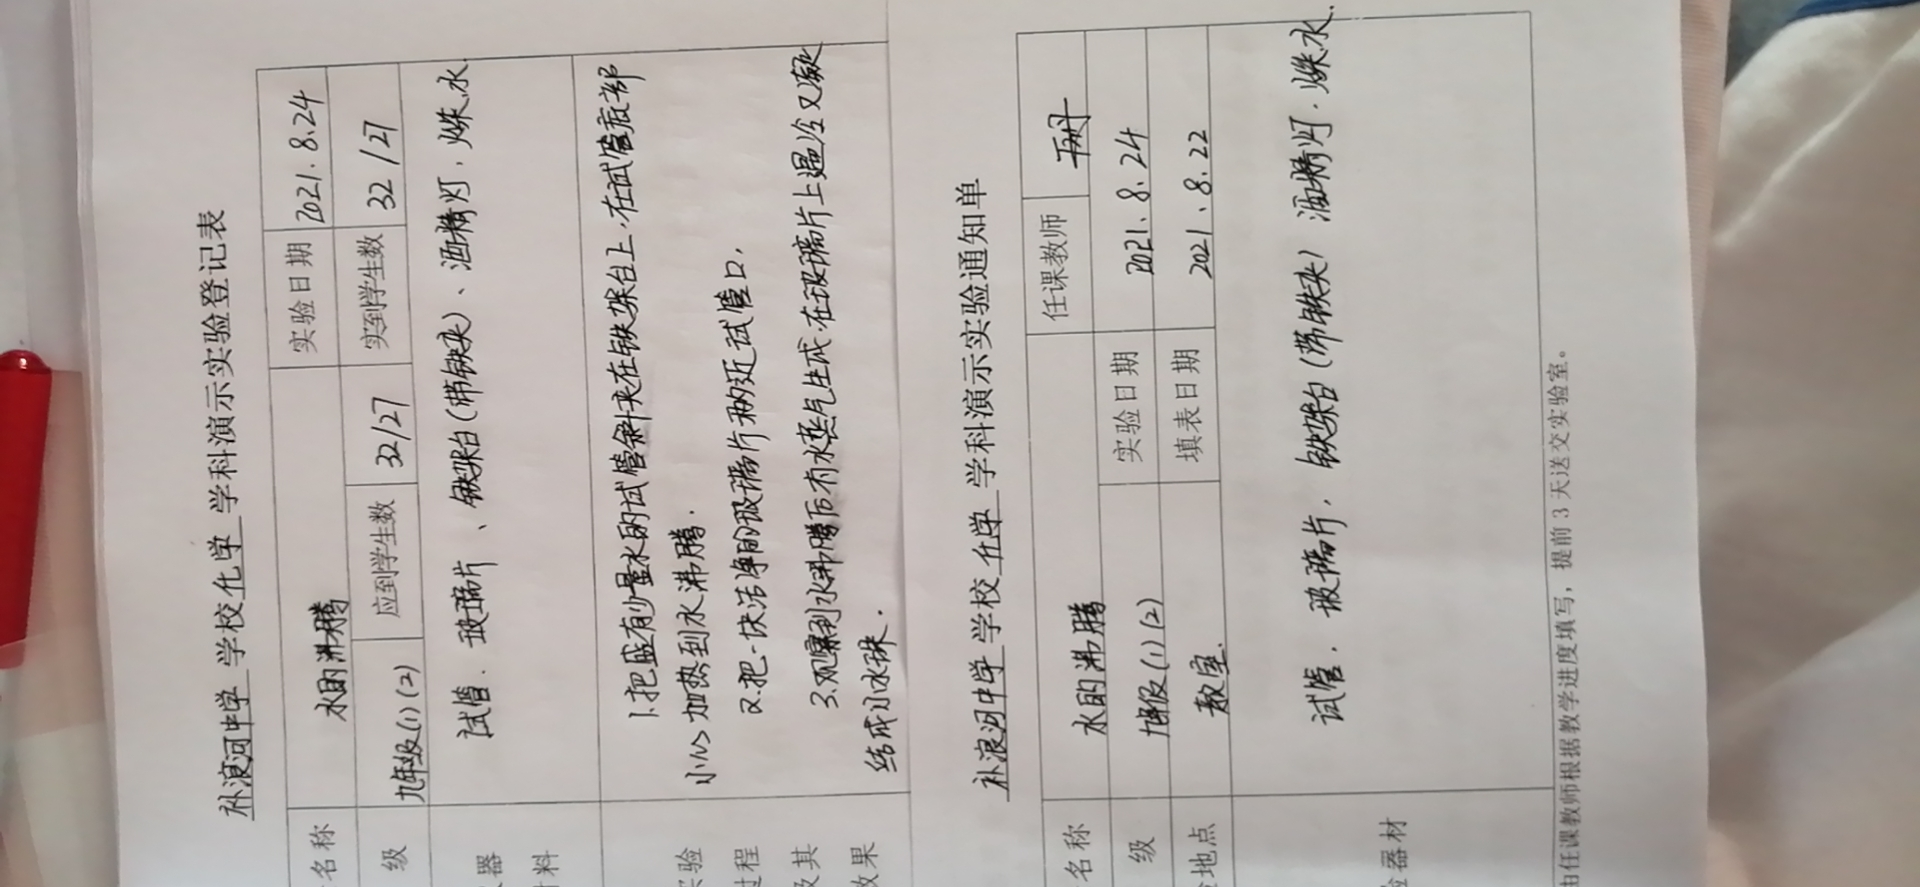 补浪河中学 学校 化学 学科演示实验登记表
名称 水的沸腾 实验日期 2021.8.24
级 九年级(1)(2) 应到学生数 32/27 实到学生数 32/27
器 试管、玻璃片、铁架台(带铁夹)、酒精灯、火柴、水
料
1.把盛有少量水的试管斜夹在铁架台上.在试管底部
实验 小心加热到水沸腾.
过程 2.把一块洁净的玻璃片移近试管口,
及其 3.观察到水沸腾后有水蒸气生成.在玻璃片上遇冷又凝
效果 结成小水珠.
补浪河中学 学校 化学 学科演示实验通知单
名称 水的沸腾 任课教师
级 九年级(1)(2) 实验日期 2021.8.24
地点 教室. 填表日期 2021.8.22
器材 试管.玻璃片,铁架台(带铁夹)酒精灯.火柴.水.
由任课教师根据教学进度填写，提前3天送交实验室。